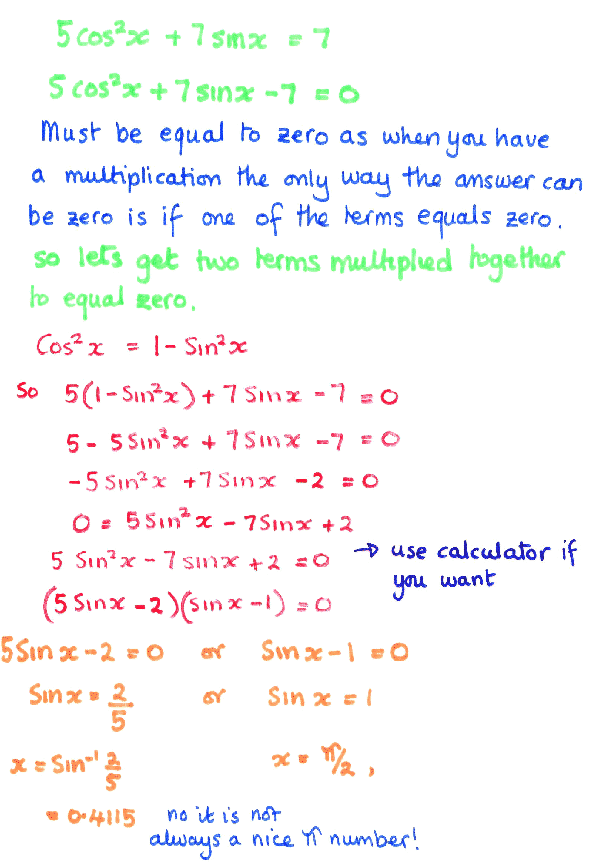 5cos²x + 7sinx = 7
5cos²x + 7sinx - 7 = 0
Must be equal to zero as when you have
a multiplication the only way the answer can
be zero is if one of the terms equals zero.
so lets get two terms multiplied together
to equal zero.
Cos²x = 1 - Sin²x
So 5(1-Sin²x) + 7Sinx - 7 = 0
5 - 5Sin²x + 7Sinx - 7 = 0
-5Sin²x + 7Sinx - 2 = 0
0 = 5Sin²x - 7Sinx + 2
5Sin²x - 7sinx + 2 = 0 → use calculator if
you want
(5Sinx - 2)(sinx - 1) = 0
5Sinx - 2 = 0 or Sinx - 1 = 0
Sinx = 2/5 or Sinx = 1
x = Sin⁻¹ 2/5 x = π/2,
= 0.4115 no it is not
always a nice π number!